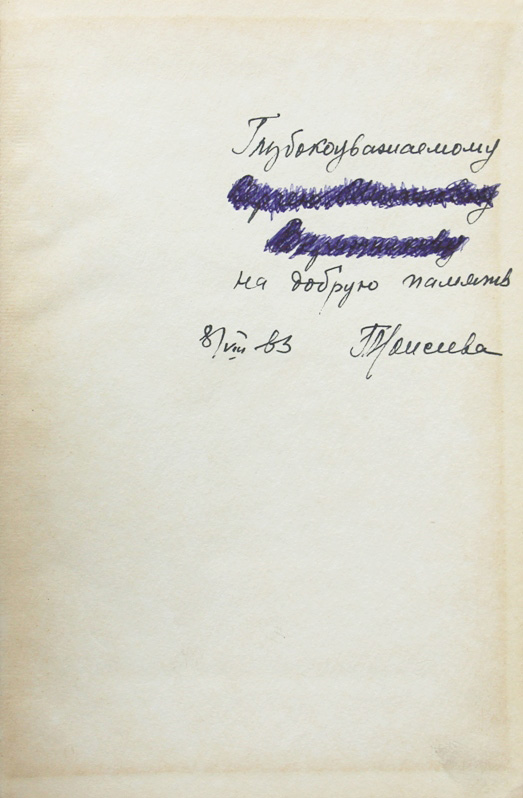 Глубокоуважаемому
на добрую память
8/VIII 83 ГМоисеева